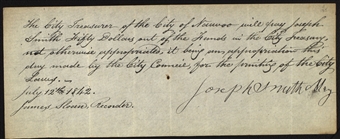 The City Treasurer of the City of Nauvoo will pay Joseph
Smith Fifty Dollars out of the Funds in the City Treasury
not otherwise appropriated, it being an appropriation this
day made by the City Council, for the printing of the City
Laws.
July 12th 1842.
James Sloan, Recorder.
Joseph Smith